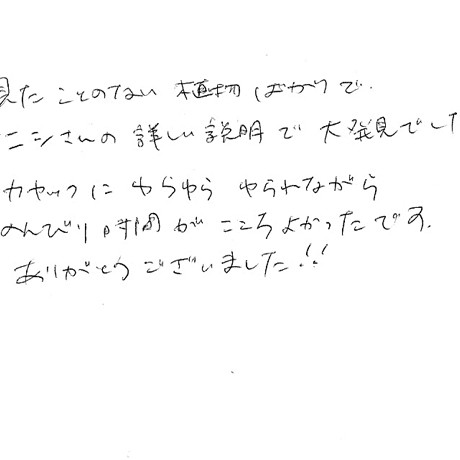 見たことのない植物ばかりで.
ニシさんの詳しい説明で大発見でした
カヤックにゆらゆらゆられながら
のんびり時間がここちよかったです.
ありがとうございました!!